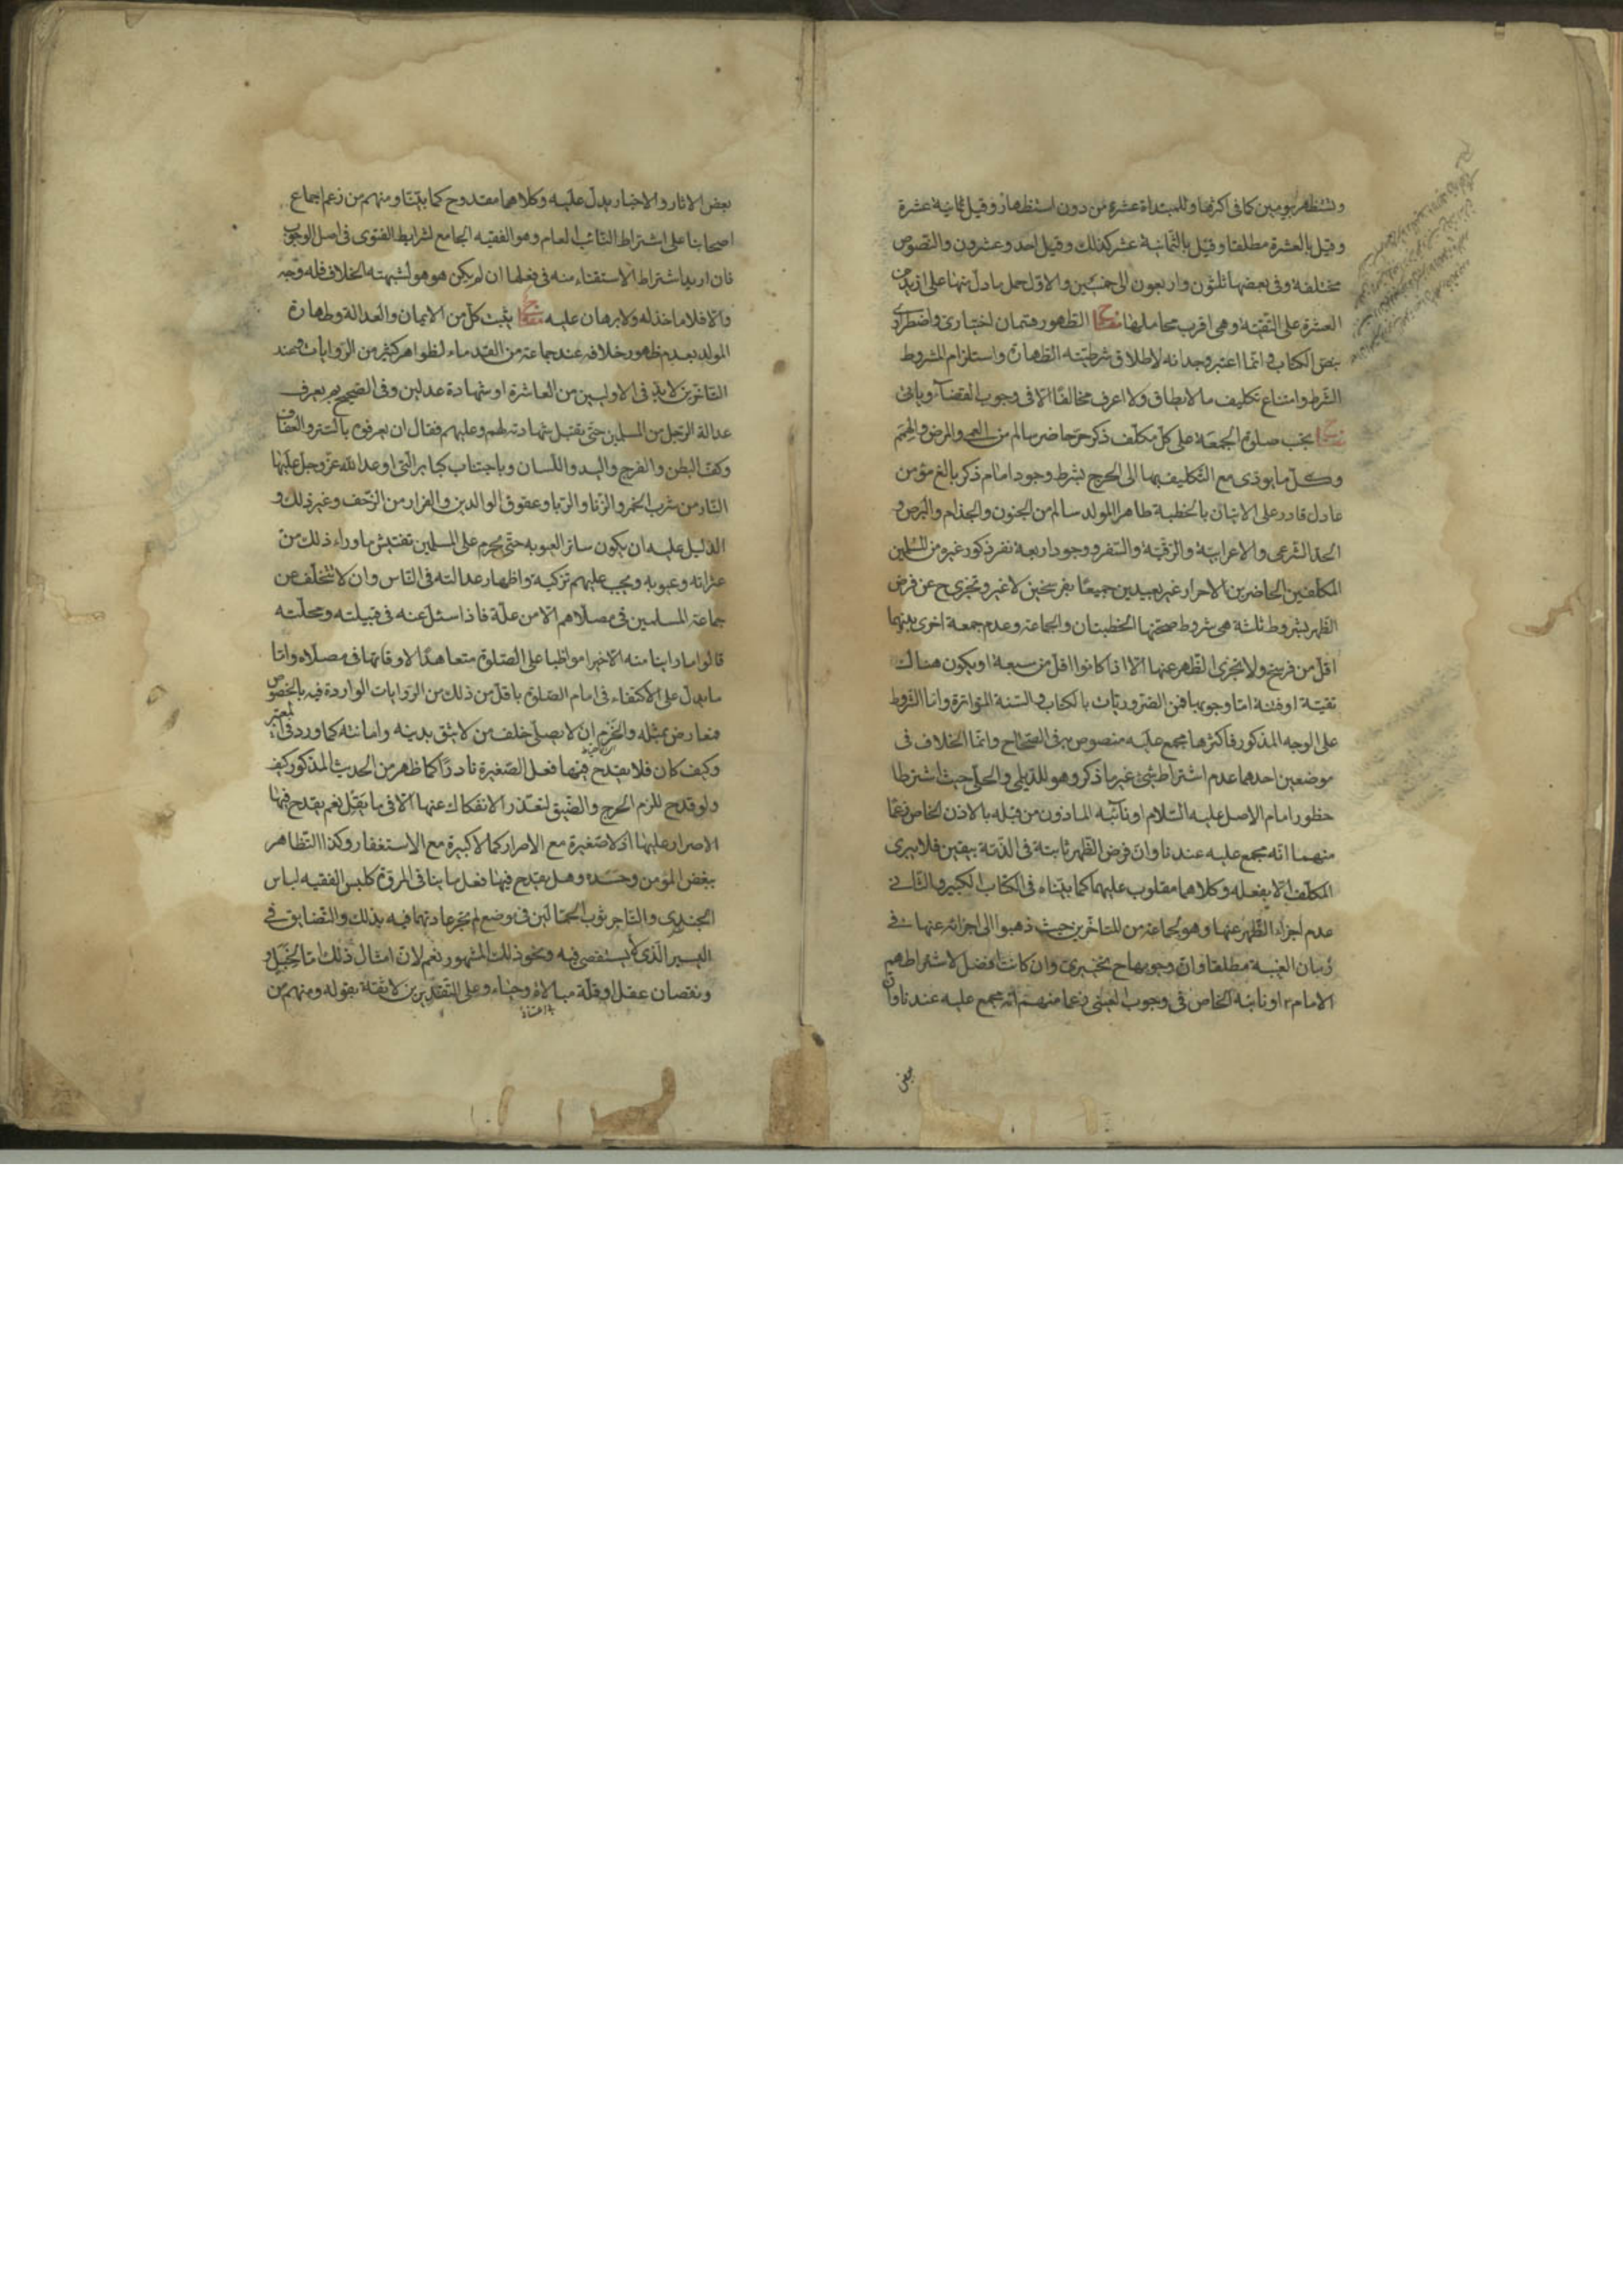 وتستظهر بيومين كما فى اكثرها وللمبتداة عشرة من دون استظهار وقيل ثمانية عشرة
وقيل بالعشرة مطلقا وقيل بالثمانية عشر كذلك وقيل احد وعشرون والنصوص
مختلفة وفى بعضها ثلثون واربعون الى خمسين والاولى حمل ما دل منها على ازيد من
العشرة على التقية وهى اقرب محاملها مفتاح الطهور قسمان اختيارى واضطرارى
بنص الكتاب وانما اعتبر وجدانه لاطلاق شرطية الطهارة واستلزام المشروط
الشرط وامتناع تكليف ما لا يطاق ولا اعرف مخالفا الا فى وجوب القضاء وياتى
مفتاح يجب صلوة الجمعة على كل مكلف ذكر حر حاضر سالم من العمى والمرض والهم
وكل ما يؤدى مع التكليف بها الى الحرج بشرط وجود امام ذكر بالغ مؤمن
عادل قادر على الاتيان بالخطبة طاهر المولد سالم من الجنون والجذام والبرص و
الحد الشرعى والاعرابية والرقية والسفر ووجود اربعة نفر ذكور غيره من المسلمين
المكلفين الحاضرين الاحرار غير بعيدين جميعا بفرسخين لا غير وتجزى ح عن فرض
الظهر بشروط ثلثة هى شروط صحتها الخطبتان والجماعة وعدم جمعة اخرى بينهما
اقل من فرسخ ولا تجزى الظهر عنها الا اذا كانوا اقل من سبعة او يكون هناك
تقية او فتنة اما وجوبها فمن الضروريات بالكتاب والسنة المتواترة واما الشروط
على الوجه المذكور فاكثرها مجمع عليه منصوص به فى الصحاح وانما الخلاف فى
موضعين احدهما عدم اشتراط شئ غير ما ذكر وهو للديلمى والحلى حيث اشترطا
حظور امام الاصل عليه السلام او نائبه الماذون من قبله بالاذن الخاص زعما
منهما انه مجمع عليه عندنا وان فرض الظهر ثابتة فى الذمة بيقين فلا يبرى
المكلف الا بفعله وكلاهما مقلوب عليهما كما بيناه فى الكتاب الكبير والثانى
عدم اجزاء الظهر عنها وهو لجماعة من المتاخرين حيث ذهبوا الى اجزائه عنها فى
زمان الغيبة مطلقا وان وجوبها ح تخييرى وان كانت افضل لاشتراطهم
الامام ع او نائبه الخاص فى وجوب العينى زعما منهم انه مجمع عليه عندنا وان
بعض
بعض الاثار والاخبار يدل عليه وكلاهما مقدوح كما بينا ومنهم من زعم اجماع
اصحابنا على اشتراط النائب العام وهو الفقيه الجامع لشرايط الفتوى فى اصل الوجوب
فان اريد اشتراط الاستفتاء منه فى فعلها ان لم يكن هو هو لشبهة الخلاف فله وجه
والا فلا ماخذ له ولا برهان عليه مفتاح يثبت كل من الايمان والعدالة وطهارة
المولد بعدم ظهور خلافه عند جماعة من القدماء لظواهر كثير من الروايات وعند
المتاخرين لا بد فى الاوليين من المعاشرة او شهادة عدلين وفى الصحيح بم يعرف
عدالة الرجل من المسلمين حتى يقبل شهادته لهم وعليهم فقال ان يعرفوه بالستر والعفاف
وكف البطن والفرج واليد واللسان وباجتناب كبائر التى اوعد الله عز وجل عليها
النار من شرب الخمر والزنا والربا وعقوق الوالدين والفرار من الزحف وغير ذلك و
الدليل عليه ان يكون ساتر العيوبه حتى يحرم على المسلمين تفتيش ما وراء ذلك من
عثراته وعيوبه ويجب عليهم تزكيته واظهار عدالته فى الناس وان لا يتخلف عن
جماعة المسلمين فى مصلاهم الا من علة فاذا سئل عنه فى قبيلته ومحلته
قالوا ما راينا منه الا خيرا مواظبا على الصلوة متعاهدا لاوقاتها فى مصلاه واما
ما يدل على الاكتفاء فى امام الصلوة باقل من ذلك من الروايات الواردة فيه بالخصوص
فمعارض بمثله والحزم ان لا يصلى خلف من لا يثق بدينه وامانته كما ورد فى المعتبر
وكيف كان فلا يقدح فيها فعل الصغيرة نادرا كما ظهر من الحديث المذكور كيف
ولو قدح للزم الحرج والضيق لتعذر الانفكاك عنها الا فى ما يقل نعم يقدح فيها
الاصرار عليها اذ لا صغيرة مع الاصرار كما لا كبيرة مع الاستغفار وكذا التظاهر
ببغض المؤمن وحسده وهل يقدح فيها فعل ما ينافى المروة كلبس الفقيه لباس
الجندى والتاجر ثوب الحمالين فى موضع لم تجر عادتهما فيه بذلك والتضايق فى
اليسير الذى لا يستقصى فيه ونحو ذلك المشهور نعم لان امثال ذلك اما لخبل و
ونقصان عقل او قلة مبالاة وحياء وعلى التقديرين لا ثقة بقوله ومنهم من